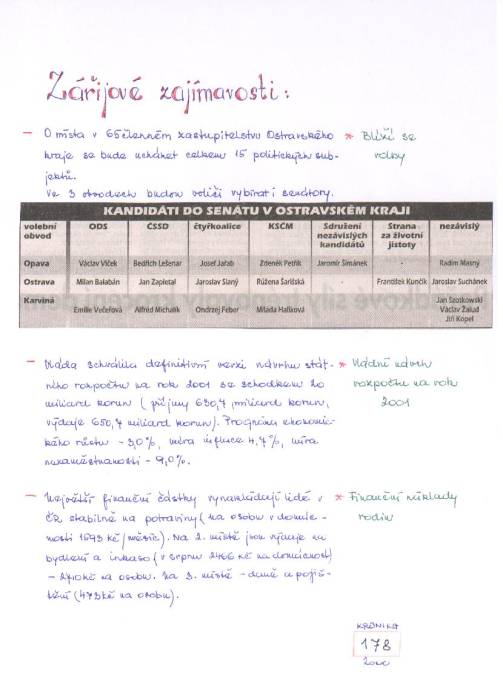 Zářijové zajímavosti:
– O místa v 65členném zastupitelstvu Ostravského
kraje se bude ucházet celkem 15 politických sub-
jektů.
Ve 3 obvodech budou voliči vybírat i senátory.
* Blíží se
volby
KANDIDÁTI DO SENÁTU V OSTRAVSKÉM KRAJI
volební obvod ODS ČSSD čtyřkoalice KSČM Sdružení nezávislých kandidátů Strana za životní jistoty nezávislý
Opava Václav Vlček Bedřich Lešenar Josef Jařab Zdeněk Petřík Jaromír Šimánek - Radim Masný
Ostrava Milan Balabán Jan Zapletal Jaroslav Slaný Růžena Šarišská František Kunčík Jaroslav Suchánek
Karviná Emilie Večeřová Alfréd Michalík Ondrzej Feber Milada Halíková Jan Szotkowski
Václav Žalud
Jiří Kopel
– Vláda schválila definitivní verzi návrhu stát-
ního rozpočtu na rok 2001 se schodkem 20
miliard korun (příjmy 630,7 miliard korun,
výdaje 650,7 miliard korun). Prognóza ekonomic-
kého růstu - 3,0%, míra inflace 4,4%, míra
nezaměstnanosti - 9,0%.
* Vládní návrh
rozpočtu na rok
2001
– Největší finanční částky vynakládají lidé v
ČR stabilně na potraviny (na osobu v domác-
nosti 1593 Kč/měsíc). Na 2. místě jsou výdaje na
bydlení a inkaso (v srpnu 2466 Kč na domácnost)
na osobu. Na 3. místě - daně a pojiš-
tění (473 Kč na osobu).
* Finanční náklady
rodin
KRONIKA
178
2000